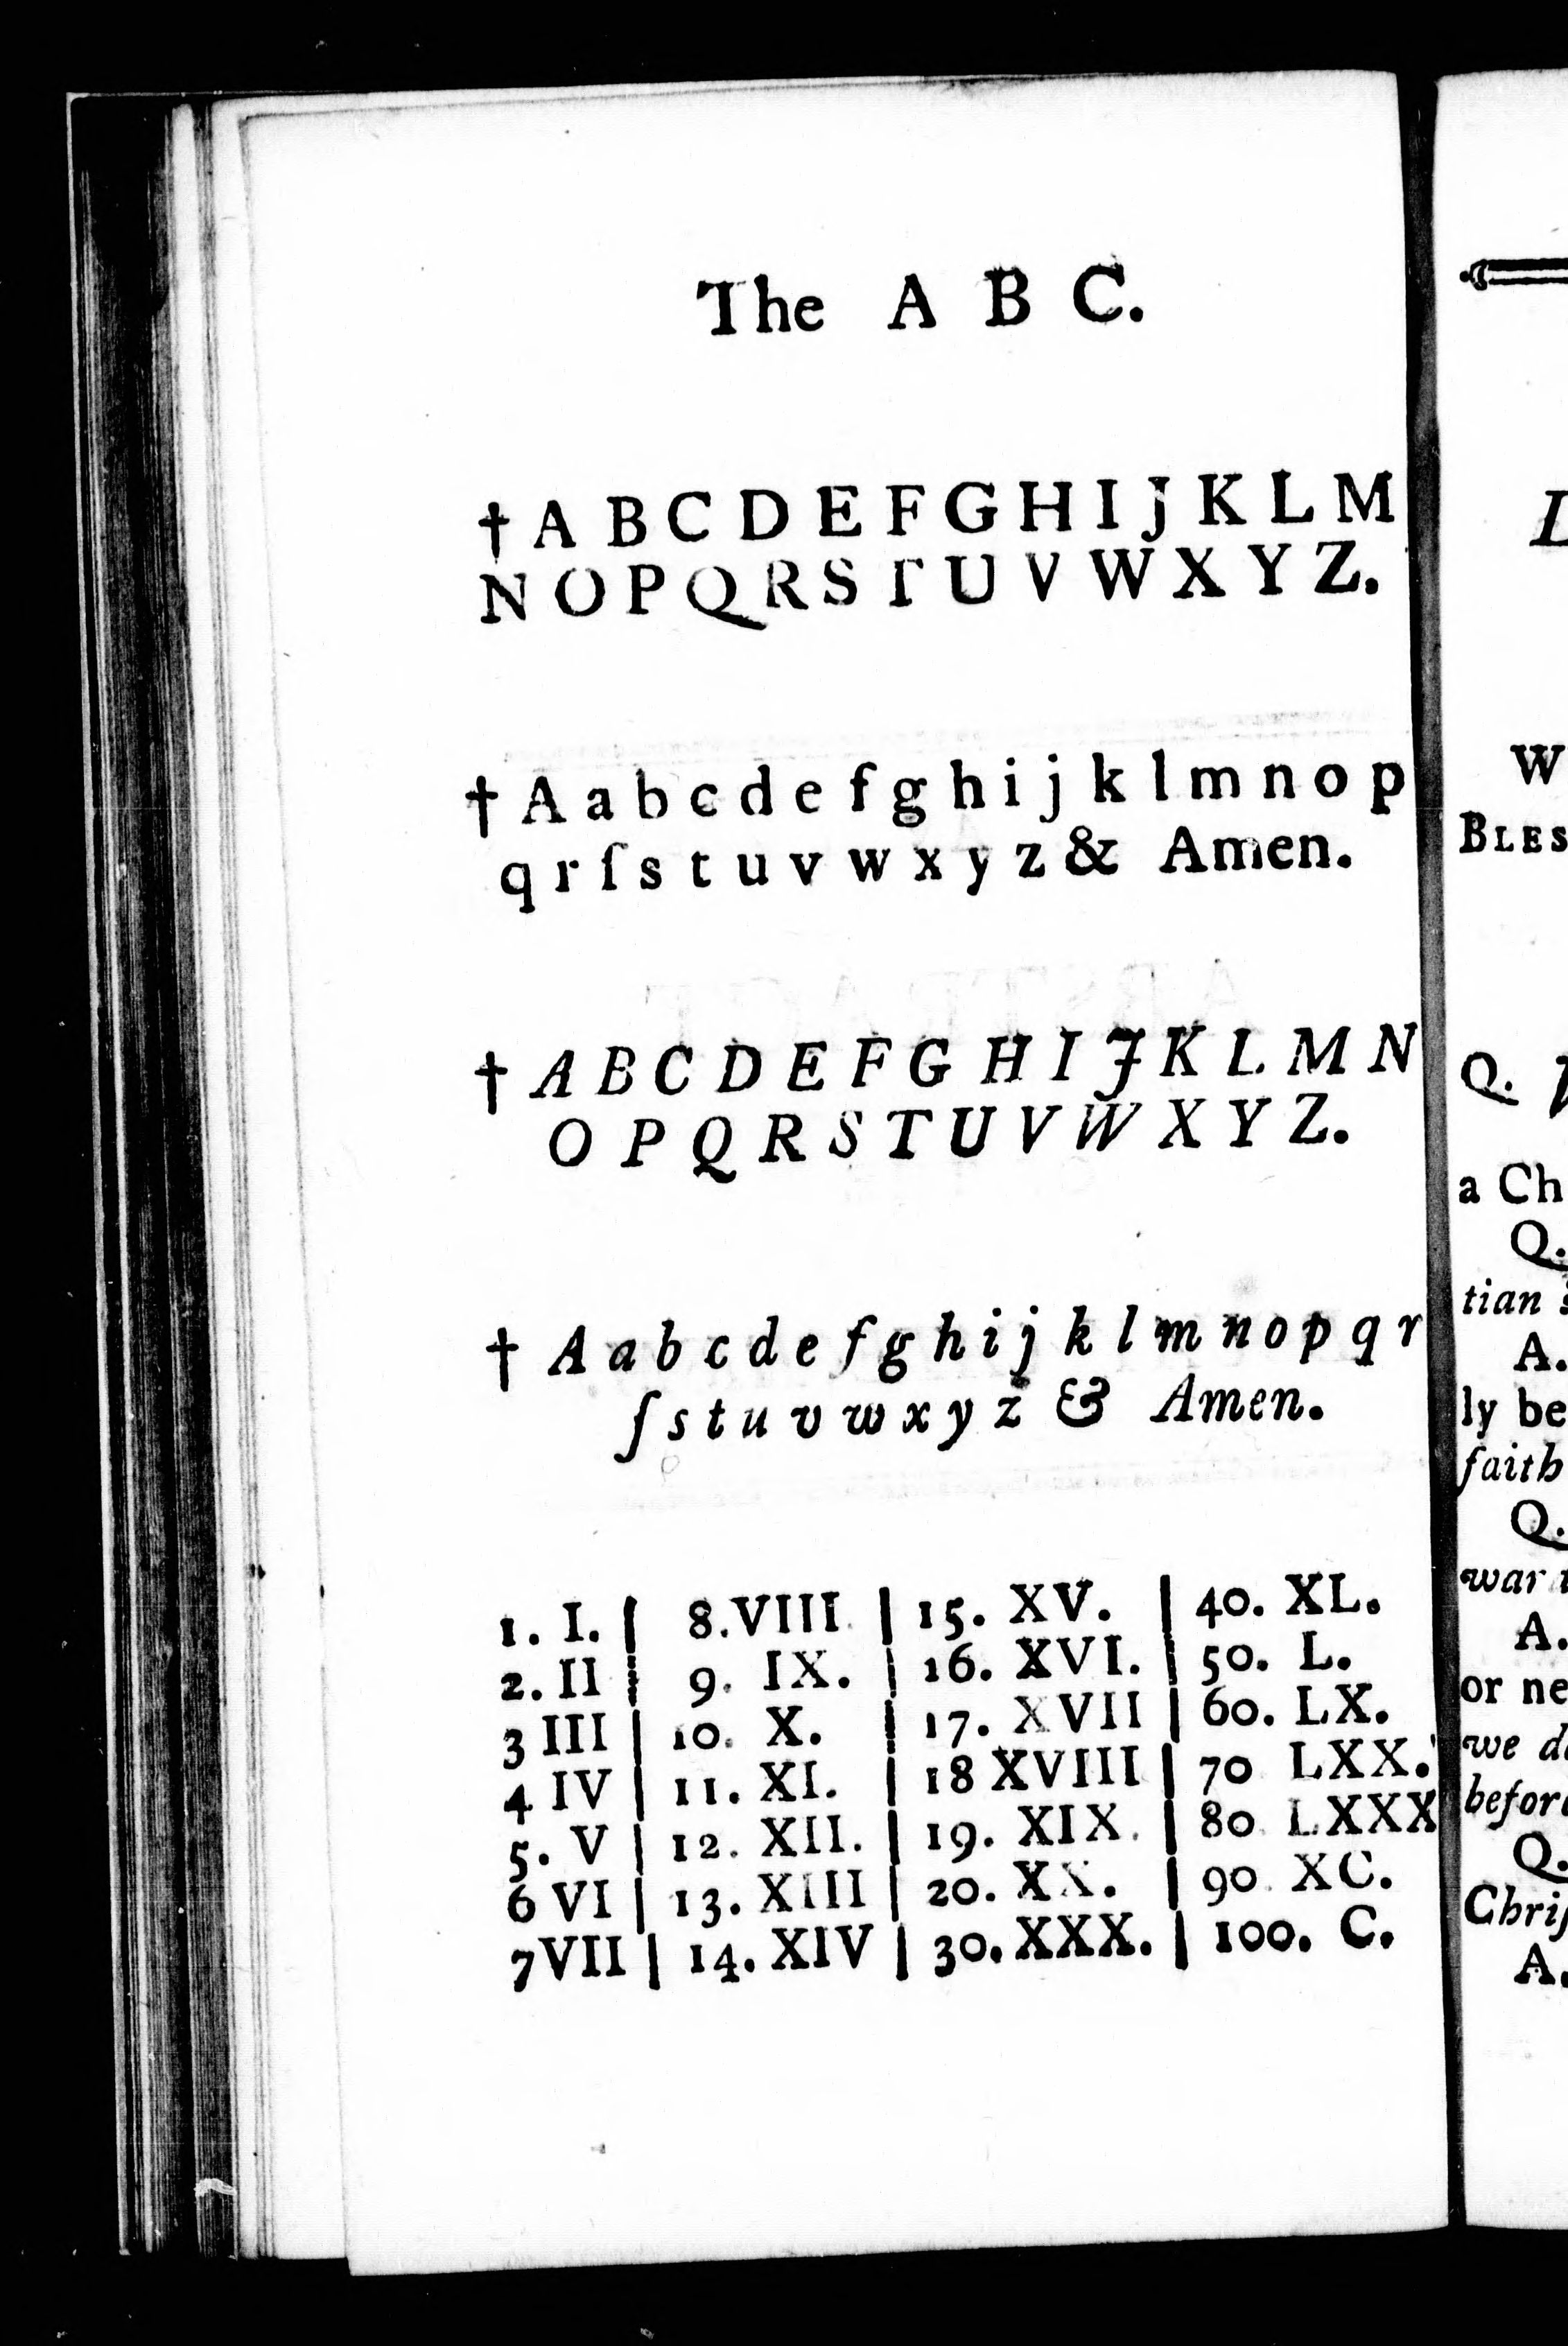 The A B C.
† A B C D E F G H I J K L M
N O P Q R S T U V W X Y Z.
† A a b c d e f g h i j k l m n o p
q r ſ s t u v w x y z & Amen.
† A B C D E F G H I J K L M N
O P Q R S T U V W X Y Z.
† A a b c d e f g h i j k l m n o p q r
ſ s t u v w x y z & Amen.
1. I. | 8. VIII | 15. XV. | 40. XL.
2. II | 9. IX. | 16. XVI. | 50. L.
3 III | 10. X. | 17. XVII | 60. LX.
4 IV | 11. XI. | 18 XVIII | 70 LXX.
5. V | 12. XII. | 19. XIX. | 80 LXXX
6 VI | 13. XIII | 20. XX. | 90. XC.
7 VII | 14. XIV | 30. XXX. | 100. C.
L
W
BLES
Q.
a Ch
Q.
tian
A.
ly be
faith
Q.
war
A.
or ne
we
before
Q.
Chriſ
A.